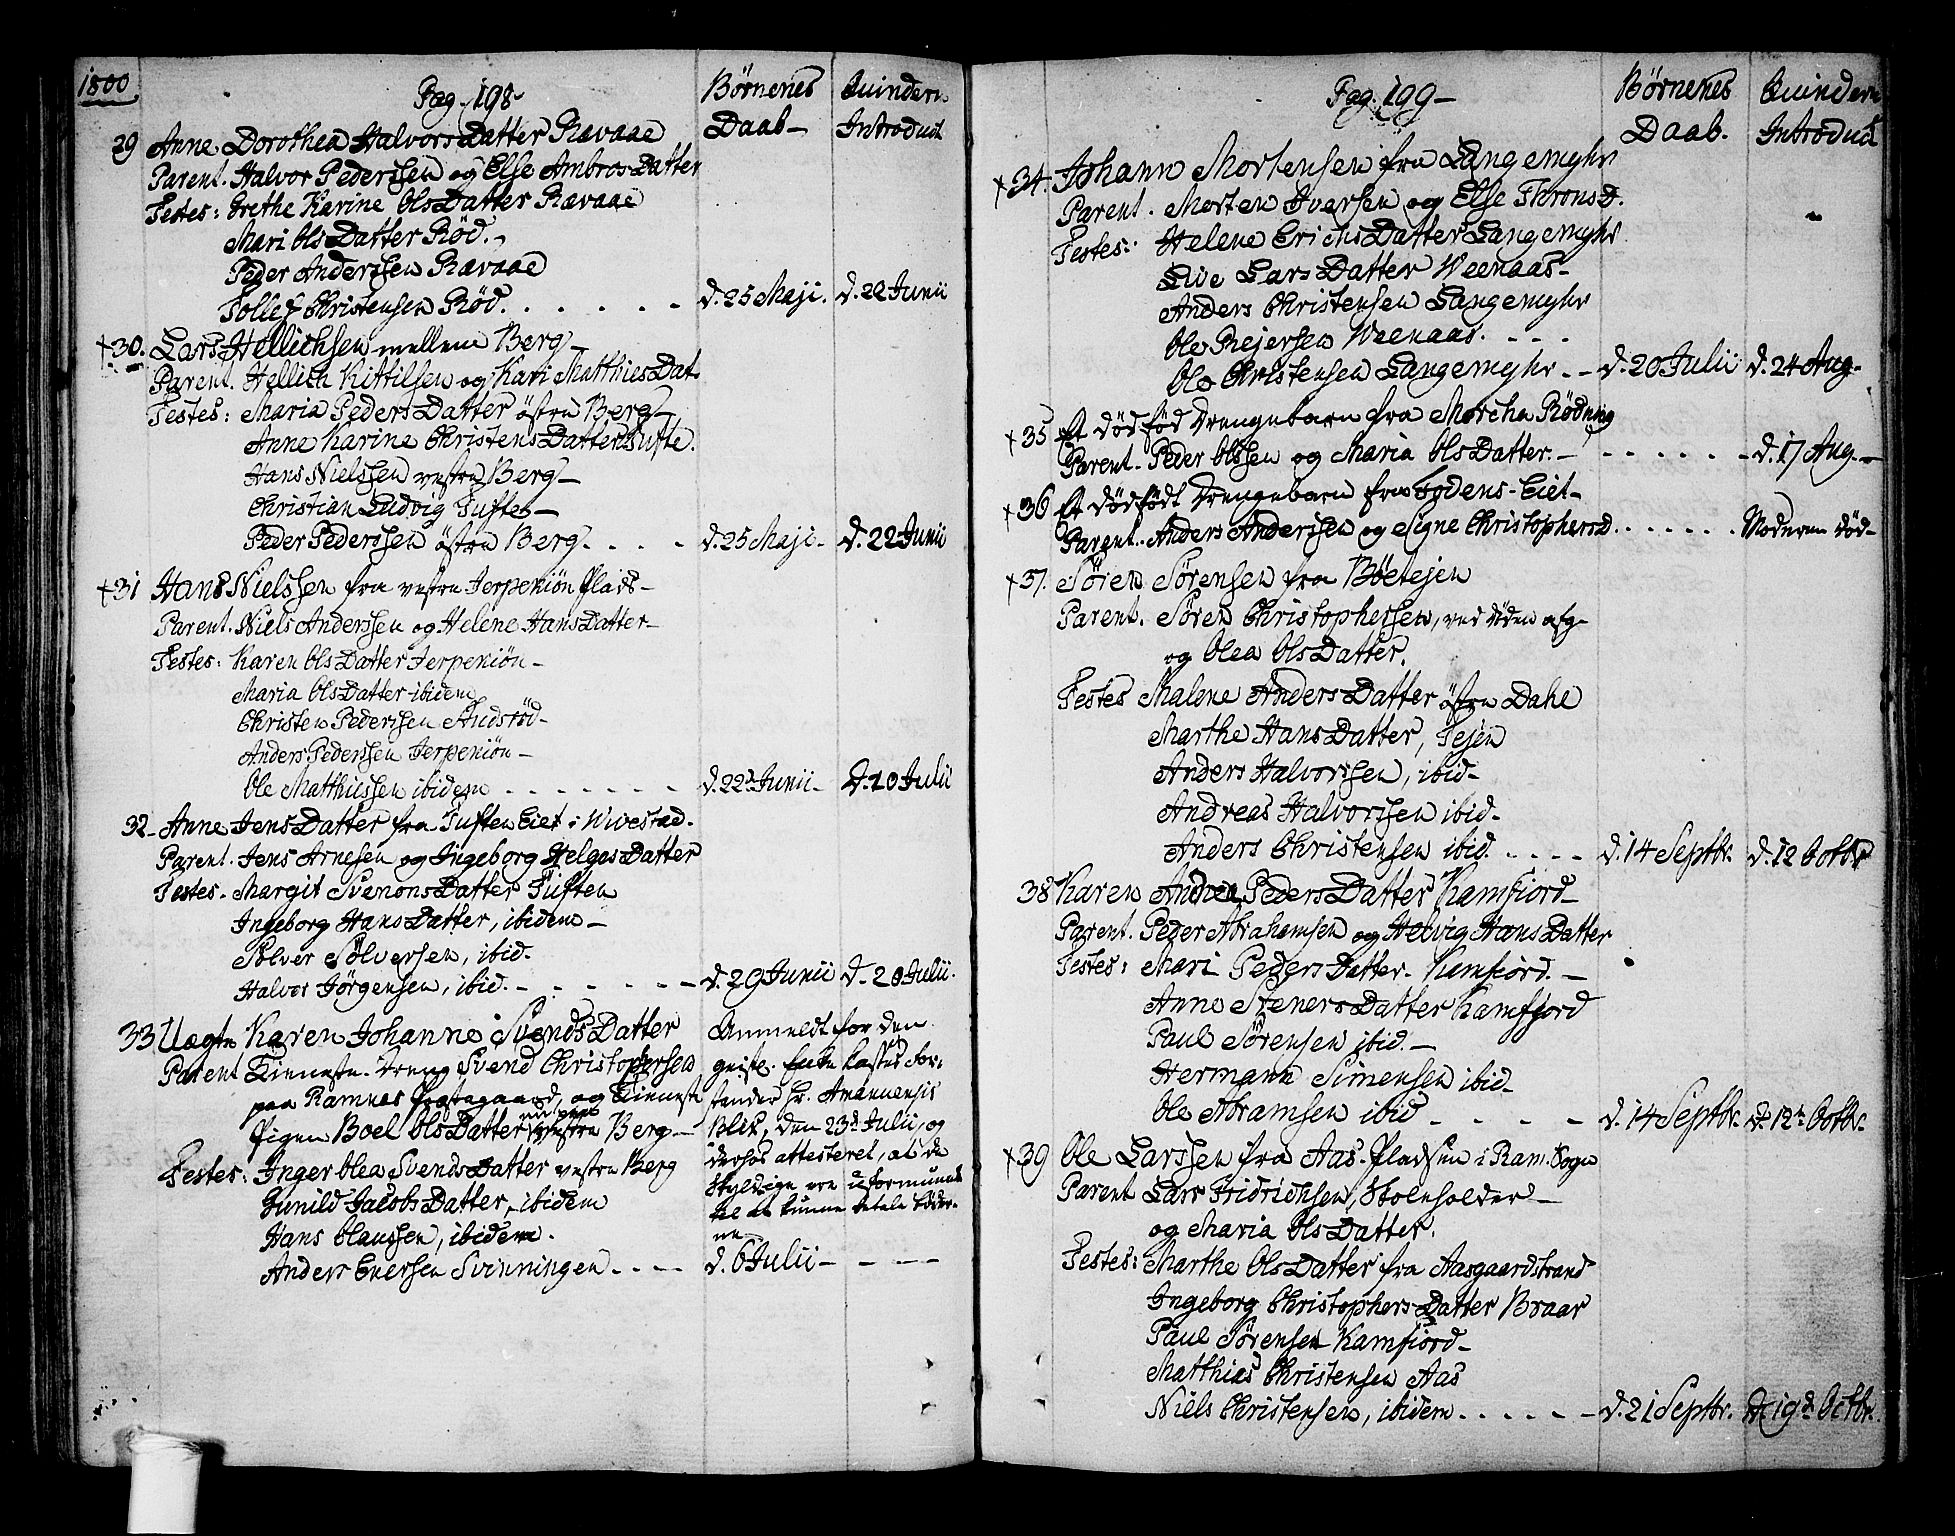 1800
Pag. 198
Börnenes Daab
Quindern Introduct
29 Anne Dorothea Halvors Datter Ravaae
Parent. Halvor Pederssen og Else Ambros Datter
Testes: Grethe Karine Ols Datter Ravaae
Mari Ols Datter Röd.
Peder Anderssen Ravaae
Tollef Christensen Röd. d. 25 Maji. d. 22 Junii
+30. Lars Hellichsen mellem Berg
Parent. Hellich Kittilsen og Kari Matthies Dat.
Testes: Maria Peders Datter östre Berg
Anne Karine Christens Datter Tufte.
Hans Nielssen vestre Berg
Christian Ludvig Tufte
Peder Pederssen östre Berg d. 25 Maji d. 22 Junii
+31 Hans Nielssen fra vestre Jerpeniön Plads
Parent. Niels Anderssen og Helene Hans Datter
Testes: Karen Ols Datter Jerpeniön
Maria Ols Datter ibidem
Christen Pederssen Andsröd
Anders Pederssen Jerpeniön
Ole Matthiessen ibidem d. 22 Junii d. 20 Julii
32 Anne Jens Datter fra Tuften Eiet i Wivestad.
Parent. Jens Arnesen og Ingeborg Helges Datter
Testes. Margit Svenons Datter Tuften
Ingeborg Hans Datter, ibidem
Sölver Sölversen, ibid.
Halvor Jörgensen, ibid. d. 29 Junii d. 20 Julii.
33 Uægte Karen Johanne Svends Datter
Parent Tieneste-Dreng Svend Christophersen
paa Ramnes Præstegaard, og Tieneste
Pigen Boel Ols Datter vestre Berg
Anmeldt for den
geistl. Enke Casses For-
stander Hr. Amanuensis
Blix, den 23d Julii, og
derhos attesteret, at de
skyldige ere uformuende
til at kunne betale Böder-
ne
Testes: Inger Olea Svends Datter vestre Berg
Gunild Jacobs Datter, ibidem
Hans Claussen, ibidem.
Anders Eversen Svinningen d. 6 Julii
Pag. 199
Börnenes Daab.
Quindern Introduct
+34. Johann Mortensen fra Langemyhr
Parent. Morten Iversen og Else Throns D.
Testes: Helene Erichs Datter Langemyhr
Live Lars Datter Weenaas
Anders Christensen Langemyhr
Ole Rejersen Weenaas.
Ole Christensen Langemyhr d. 20 Julii d. 24 Aug.
+35 Et dödföd Drengebarn fra Mörcha Rödning
Parent. Peder Olssen og Maria Ols Datter. d. 17 Aug.
+36 Et dödfödt Drengebarn fra Fodens-Eiet
Parent. Anders Anderssen og Signe Christophers D. Moderen död
+37. Sören Sörensen fra Böetejen
Parent. Sören Christophersen, ved Döden afg.
og Olea Ols Datter.
Testes Malene Anders Datter östre Dahl
Marthe Hans Datter, Tejen
Anders Halvorssen, ibid.
Andreas Halvorssen ibid.
Anders Christensen ibid. d. 14 Septbr. d. 12 Octbr
38 Karen Andrea Peders Datter Kamfiord
Parent. Peder Abrahamsen og Helvig Hans Datter
Testes: Mari Peders Datter Kamfiord.
Anne Steners Datter Kamfjord
Paul Sörensen ibid.
Hermann Simensen ibid.
Ole Abramsen ibid d. 14 Septbr. d. 12te Octbr.
+39 Ole Larssen fra Aas-Pladsen i Ram. Sogn
Parent Lars Fridrichsen, Skoleholder
og Maria Ols Datter.
Testes: Marthe Ols Datter fra Aasgaardstrand
Ingeborg Christophers Datter Braar
Paul Sörensen Kamfiord
Matthias Christensen Aas
Niels Christensen, ibidem d. 21 Septbr. d. 19d Octbr.